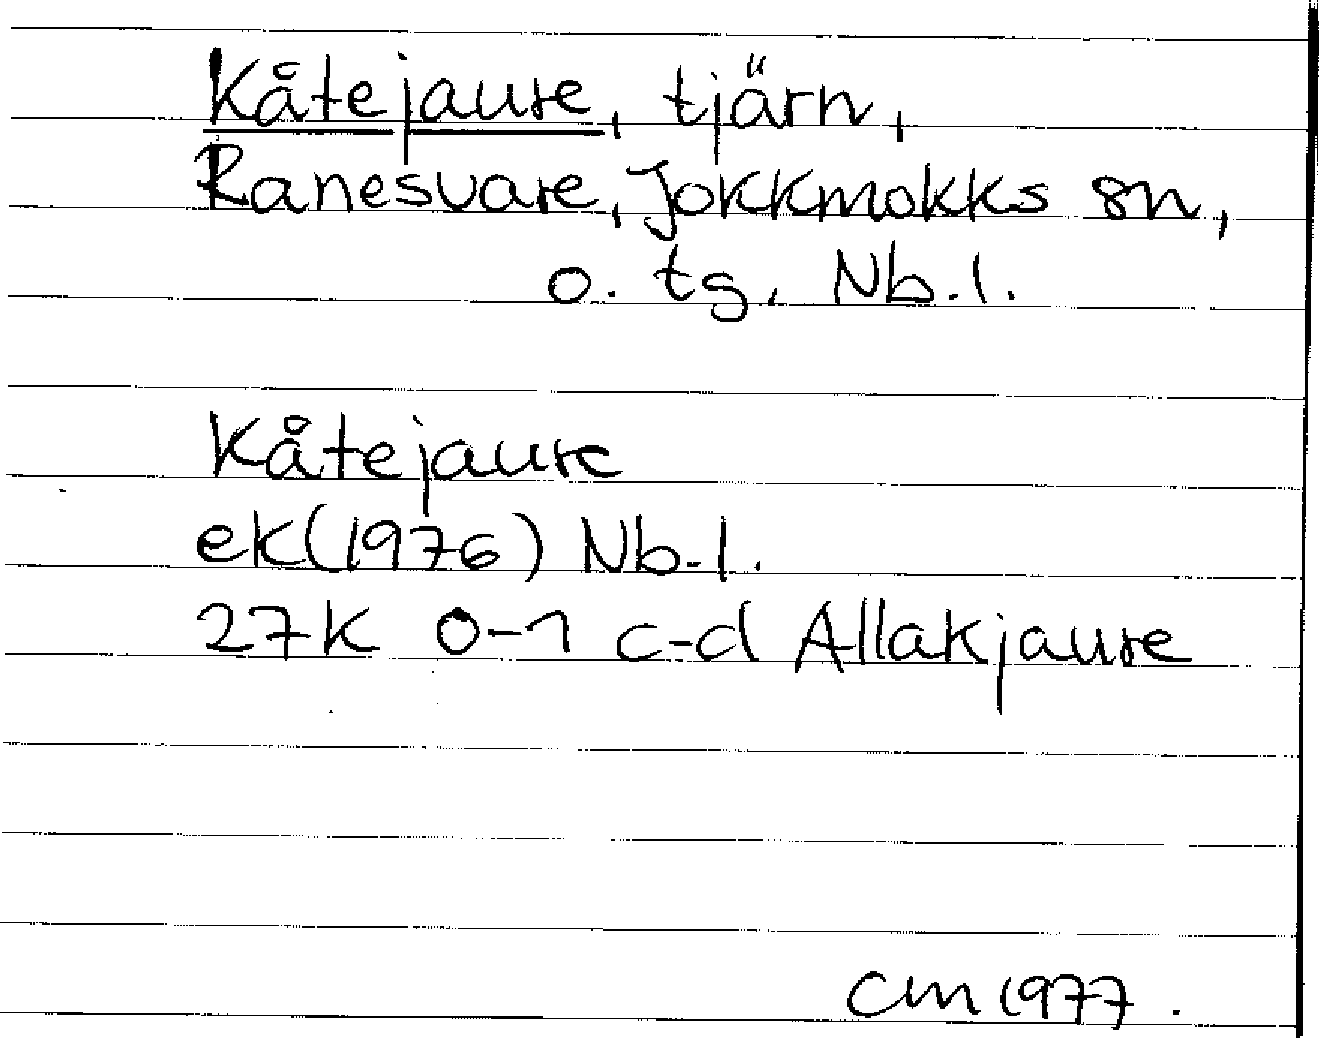 Kåtejaure, tjärn,
Ranesvare, Jokkmokks sn,
o. tg. Nb.l.
Kåtejaure
ek(1976) Nb.l.
27K 0-1 c-d Allakjaure
CM 1977.